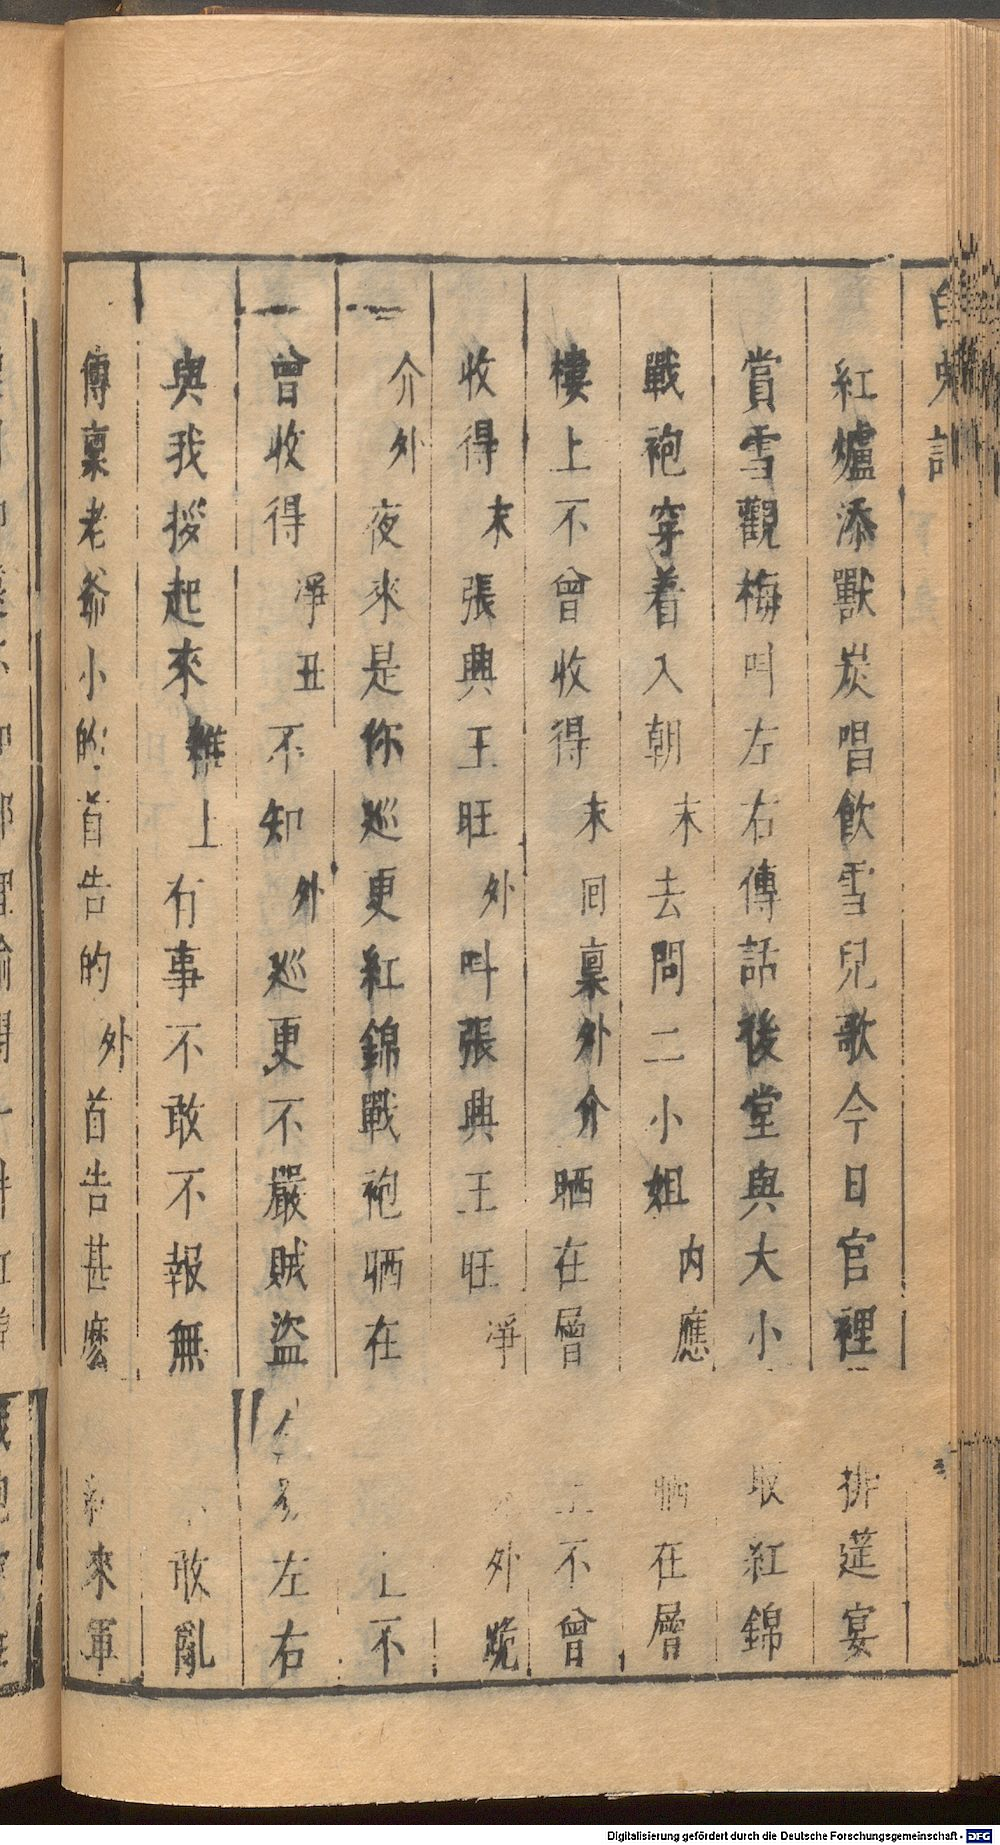 白兔記
紅爐添獸炭唱飲雪兒歌今日官裡排莚宴
賞雪觀梅叫左右傳話後堂與大小取紅錦
戰袍穿着入朝末去問二小姐內應晒在層
樓上不曾收得末回稟外介晒在層上不曾
收得末張興王旺外叫張興王旺淨外跪
介外夜來是你巡更紅錦戰袍晒在不
曾收得淨丑不知外巡更不嚴賊盜左右
與我拶起來雜上有事不敢不報無敢亂
傳稟老爺小的首告的外首告甚麽來軍
Digitalisierung gefördert durch die Deutsche Forschungsgemeinschaft - DFG